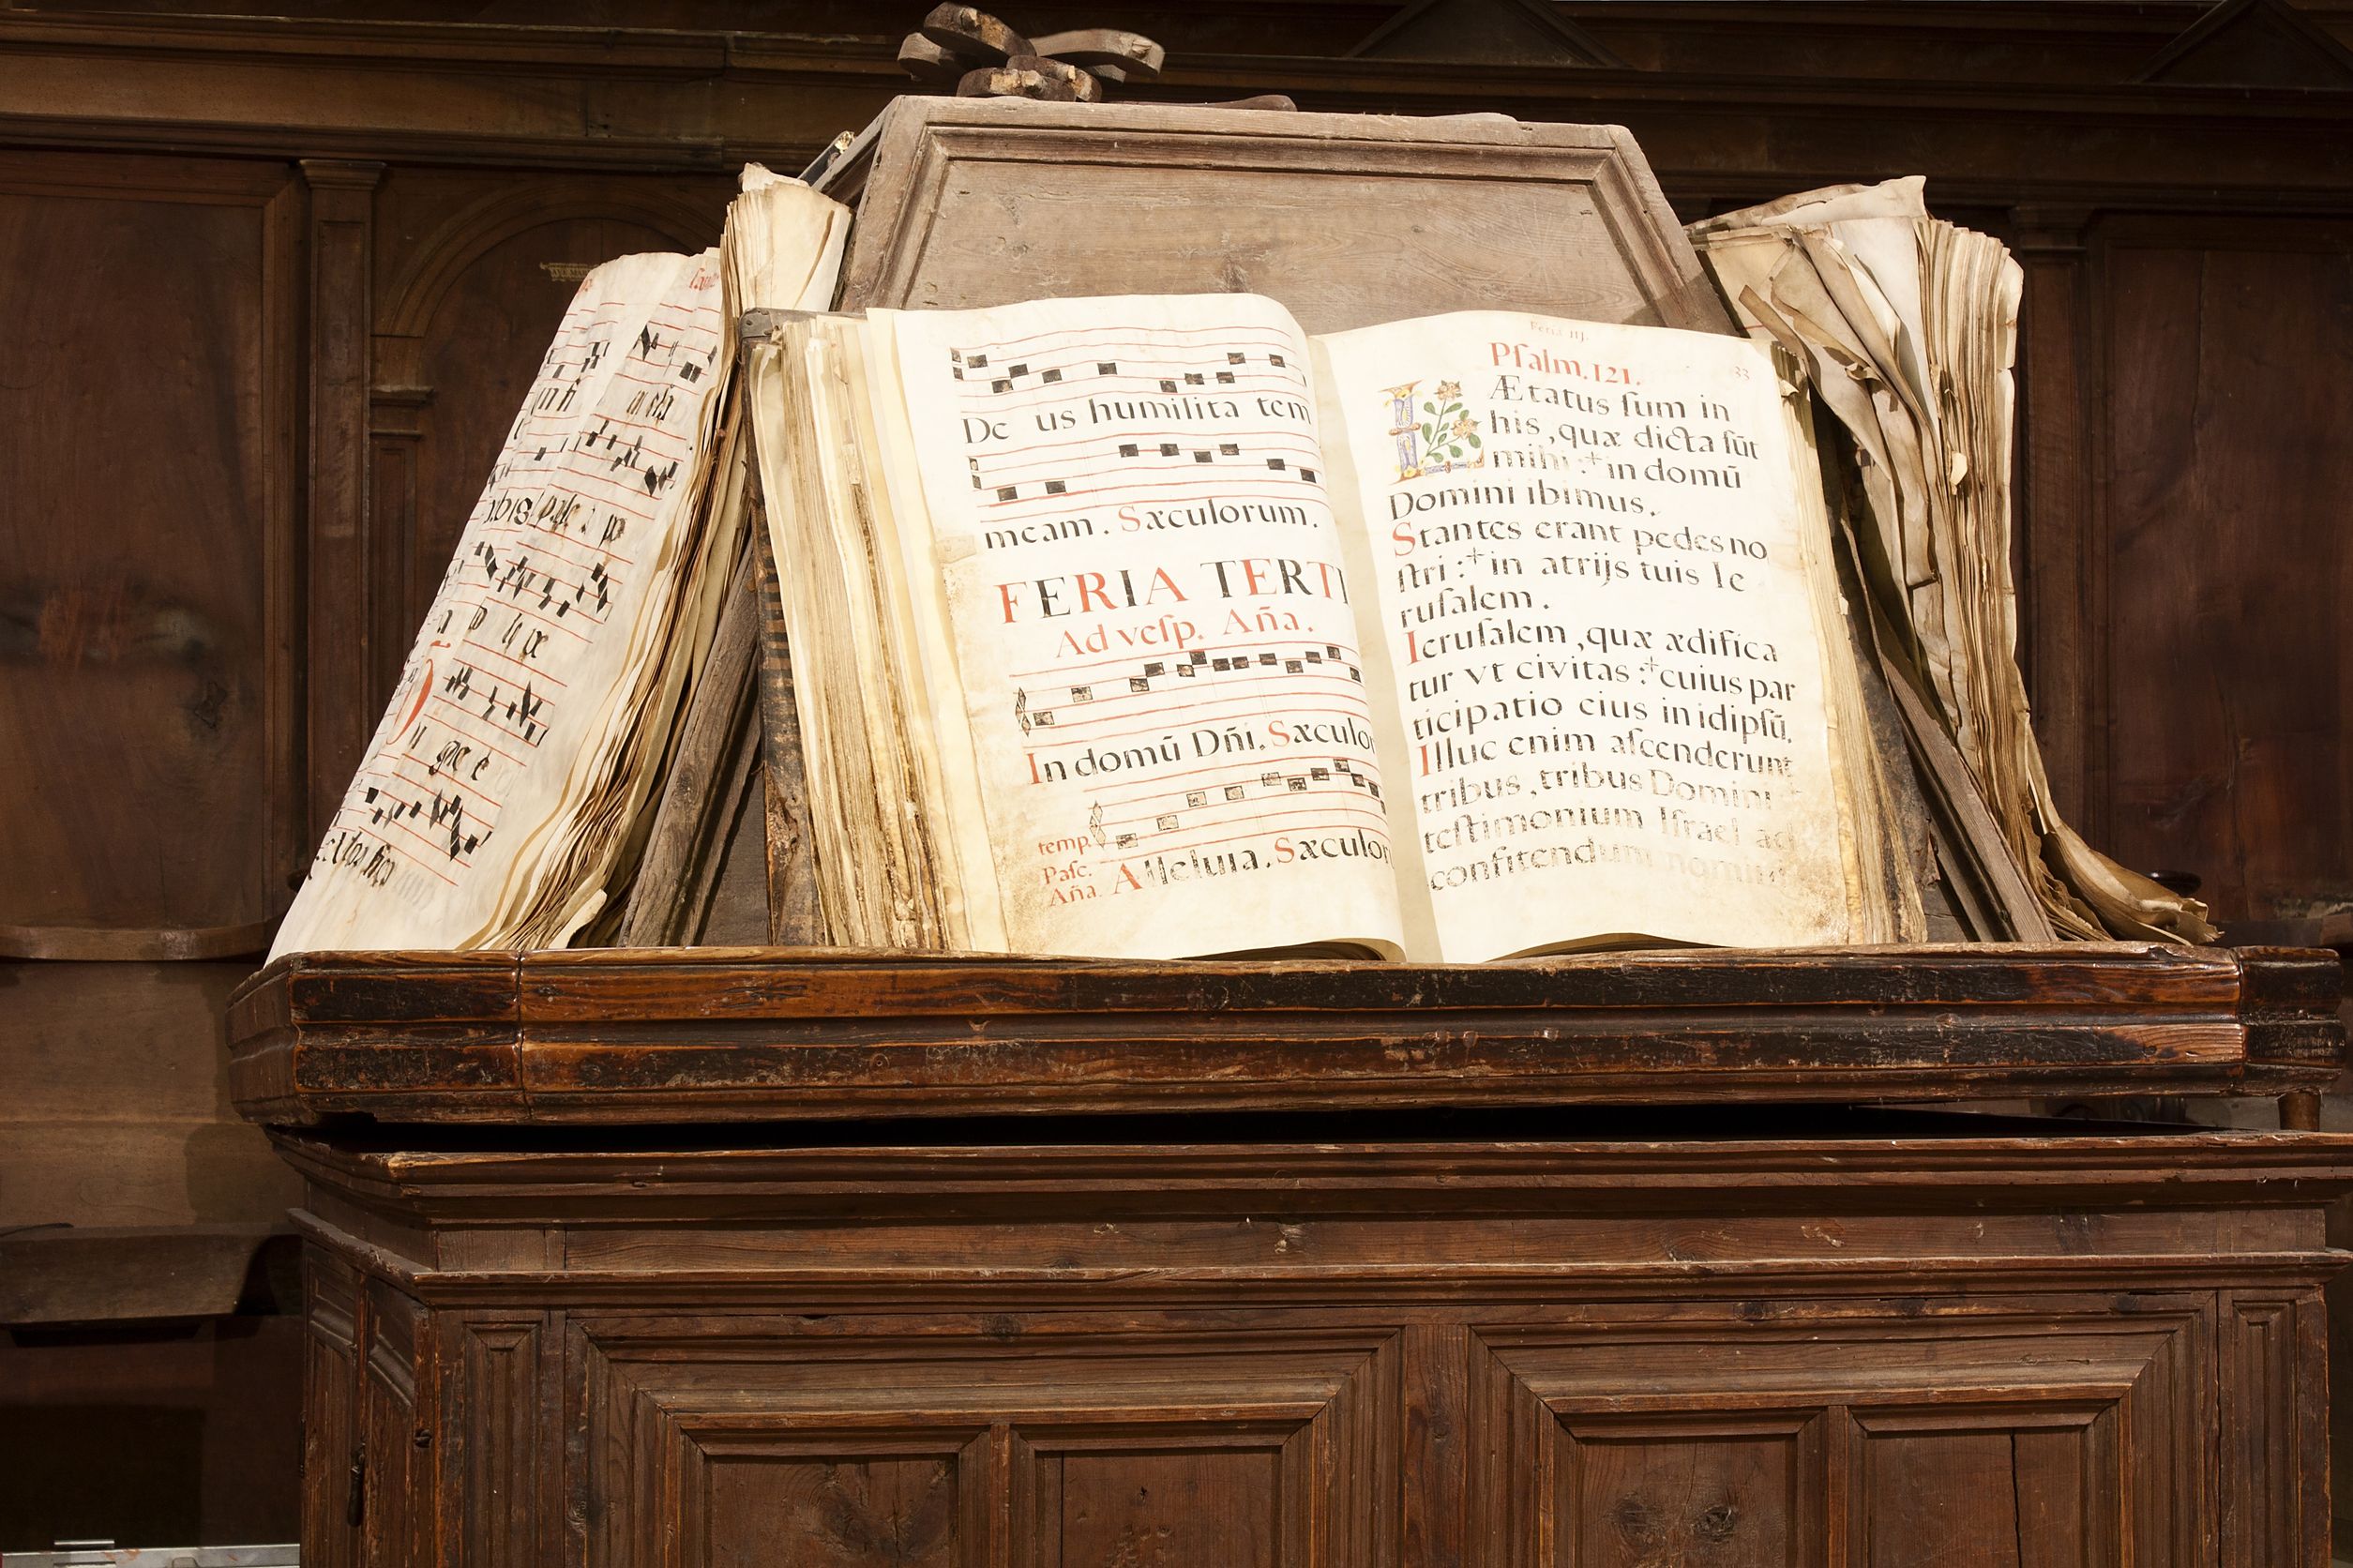 De us humilita tem
meam. Sæculorum.
FERIA TERTI
Ad veſp. Aña.
In domū Dñi. Sæculo
temp.
Paſc.
Aña. Alleluia. Sæculor
Feria iij.
33
Pſalm. 121.
LÆtatus ſum in
his, quæ dicta ſūt
mihi :+ in domū
Domini ibimus.
Stantes erant pedes no
ſtri :+ in atrijs tuis Ie
ruſalem.
Ieruſalem, quæ ædifica
tur vt civitas :+ cuius par
ticipatio eius in idipſū.
Illuc enim aſcenderunt
tribus, tribus Domini +
teſtimonium Iſrael ad
confitendum nomini